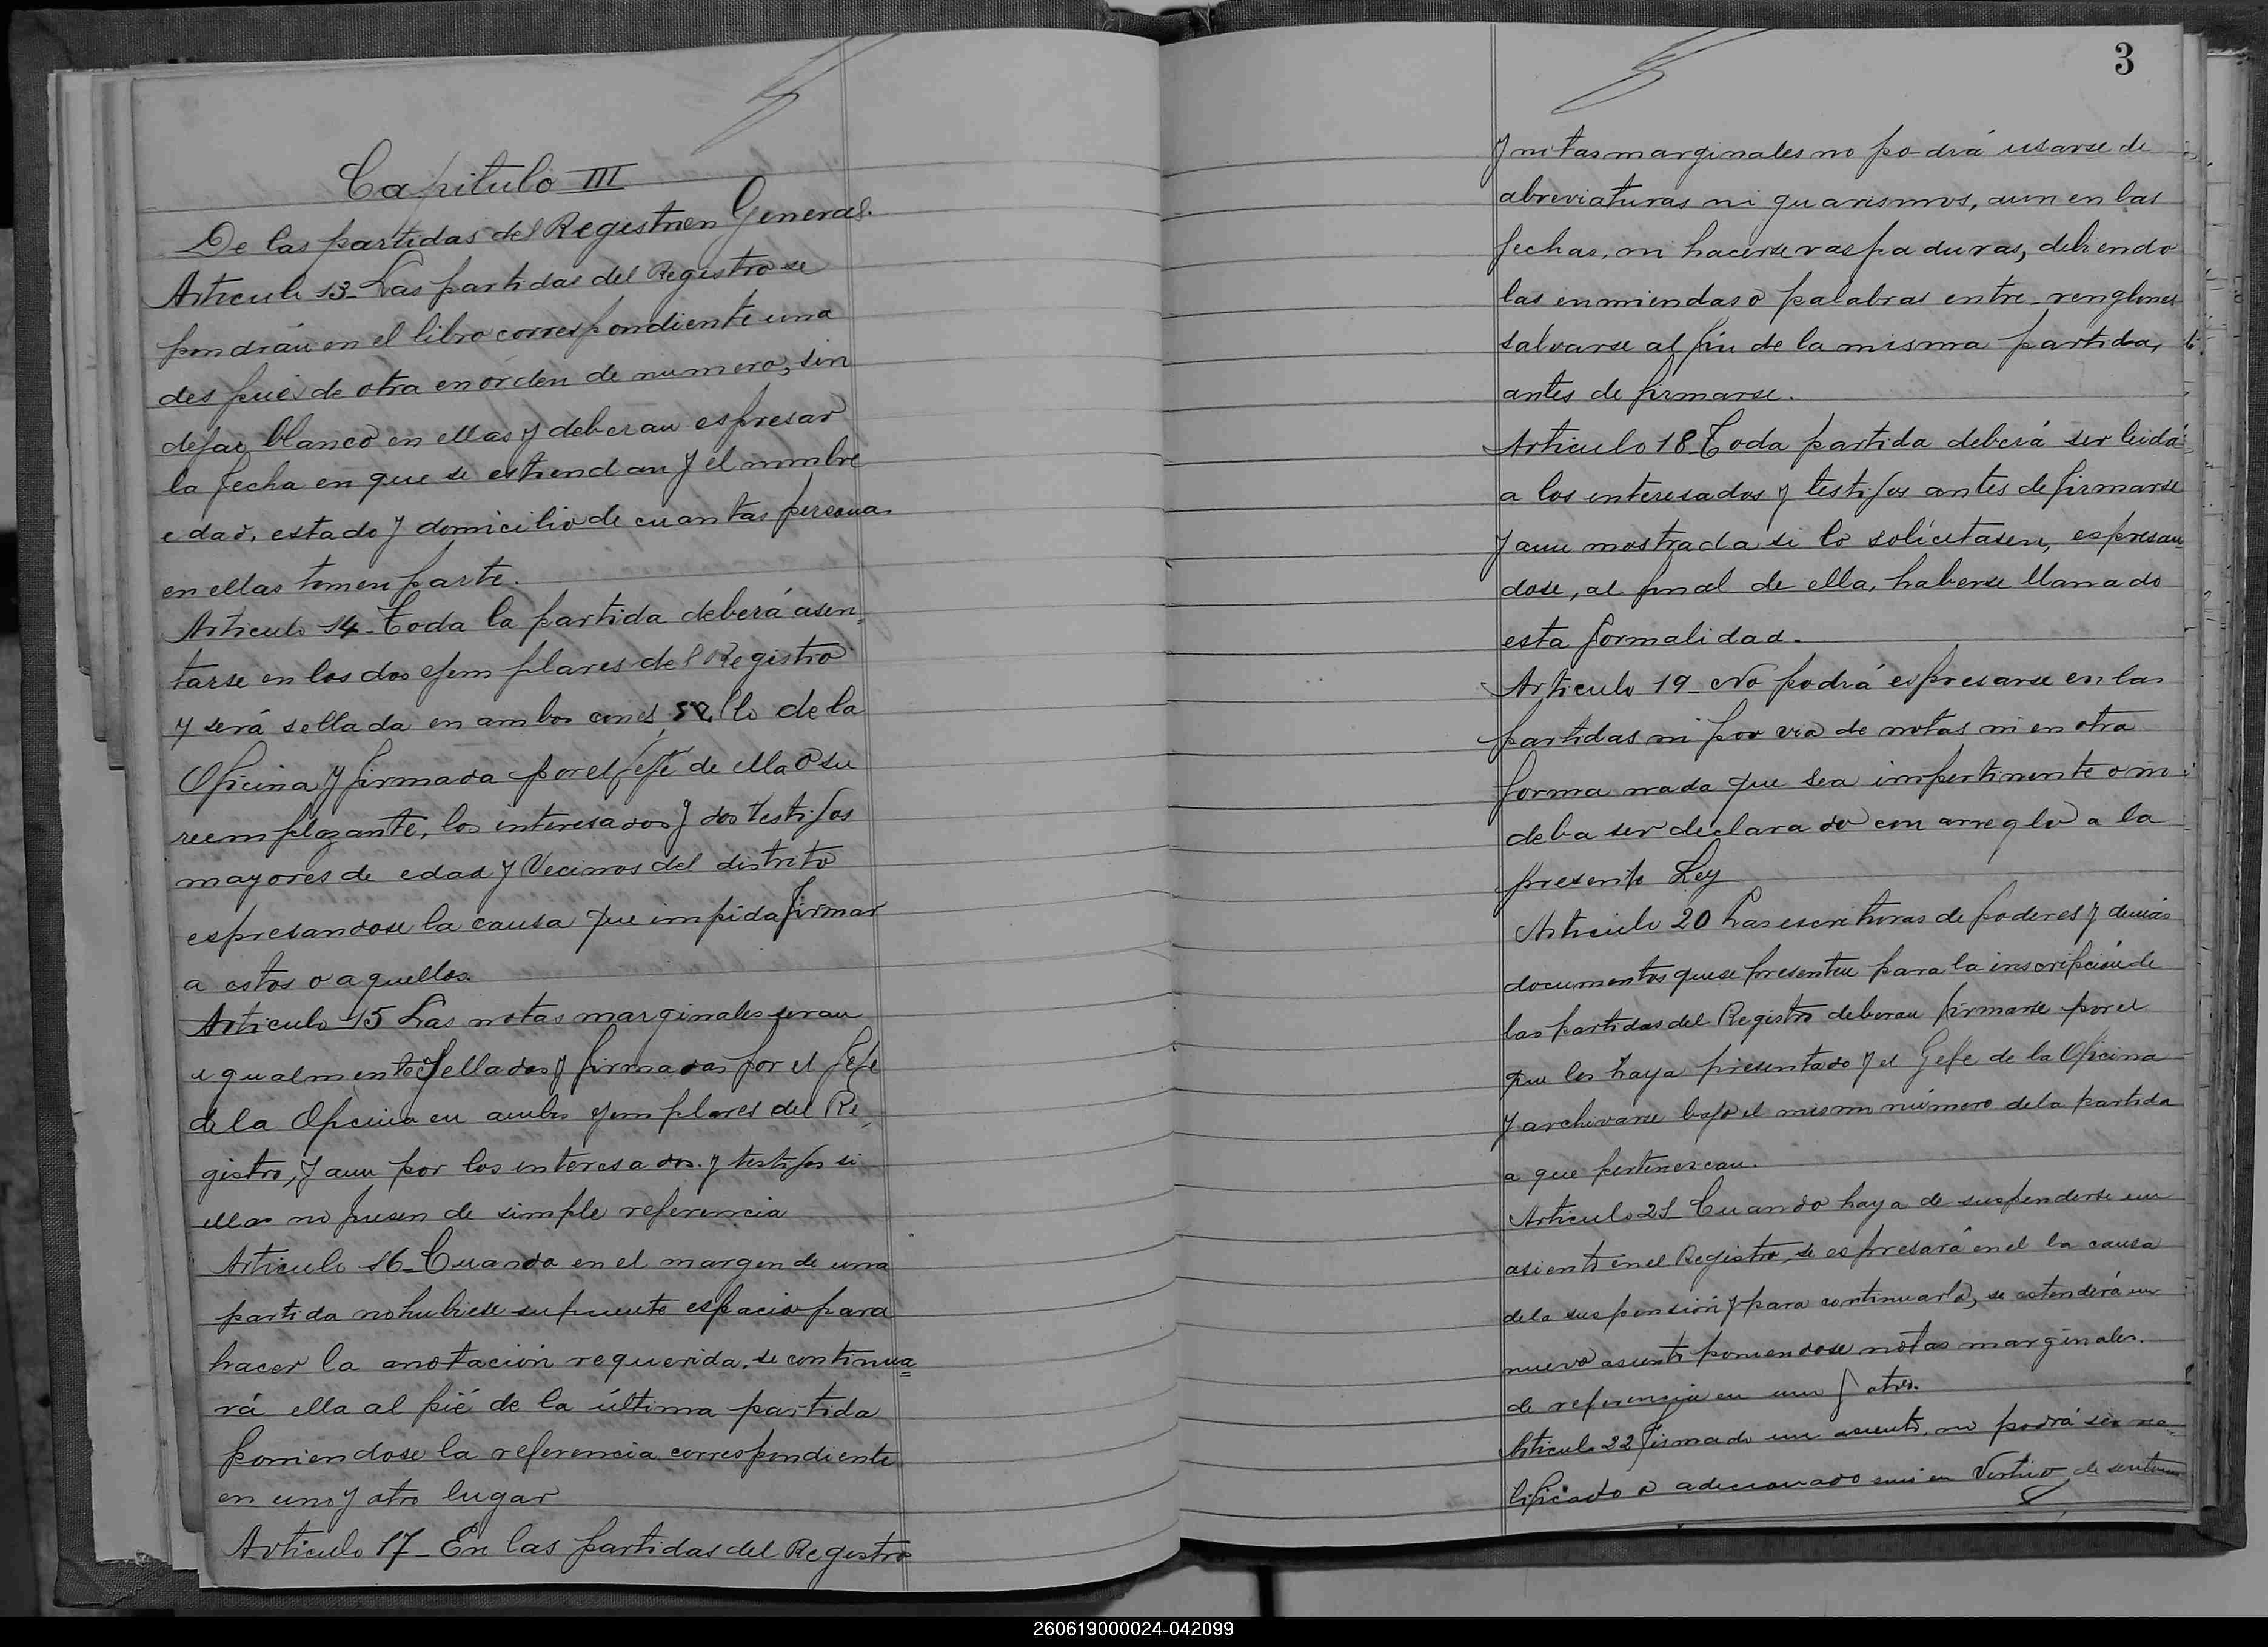 Capitulo III
De las partidas del Registro en General.
Articulo 13_ Las partidas del Registro se
pondrán en el libro correspondiente una
despues de otra en órden de numero, sin
dejar blanco en ellas y deberan espresar
la fecha en que se estiendan y el nombre
edad, estado y domicilio de cuantas personas
en ellas tomen parte.
Articulo 14_ Toda la partida deberá asen=
tarse en los dos ejemplares del Registro
y será sellada en ambos con el sello de la
Oficina y firmada por el jefe de ella o su
reemplazante, los interesados y dos testigos
mayores de edad y Vecinos del distrito
espresandose la causa que impida firmar
a estos o aquellos.
Articulo 15 Las notas marginales seran
igualmente selladas y firmadas por el Jefe
de la Oficina en ambos ejemplares del Re=
gistro, y aun por los interesados y testigos si
ellas no fuesen de simple referencia
Articulo 16_ Cuando en el margen de una
partida no hubiese suficiente espacio para
hacer la anotación requerida, se continua=
rá ella al pié de la última partida
poniendose la referencia correspondiente
en uno y otro lugar
Articulo 17_ En las partidas del Registro
3
y notas marginales no podrá usarse de
abreviaturas ni guarismos, aun en las
fechas, ni hacerse raspaduras, debiendo
las enmiendas o palabras entre-renglones
salvarse al fin de la misma partida,
antes de firmarse.
Articulo 18_ Toda partida deberá ser leida
a los interesados y testigos antes de firmarse
y aun mostrada si lo solicitasen, espresan=
dose, al final de ella, haberse llanado
esta formalidad.
Articulo 19_ No podrá espresarse en las
partidas ni por via de notas ni en otra
forma nada que sea impertinente o no
deba ser declarado con arreglo a la
presente Ley
Articulo 20 Las escrituras de poderes y demás
documentos que se presenten para la inscripción de
las partidas del Registro deberan firmarse por el
que los haya presentado y el Gefe de la Oficina
y archivarse bajo el mismo número de la partida
a que pertenezcan.
Articulo 21_ Cuando haya de suspenderse un
asiento en el Registro, se espresará en el la causa
de la suspensión y para continuarlo, se estenderá un
nuevo asiento poniendose notas marginales
de referencia en uno y otro.
Articulo 22 Firmado un asiento, no podrá ser
o adicionado sino en Virtud de sentencia
260619000024-042099